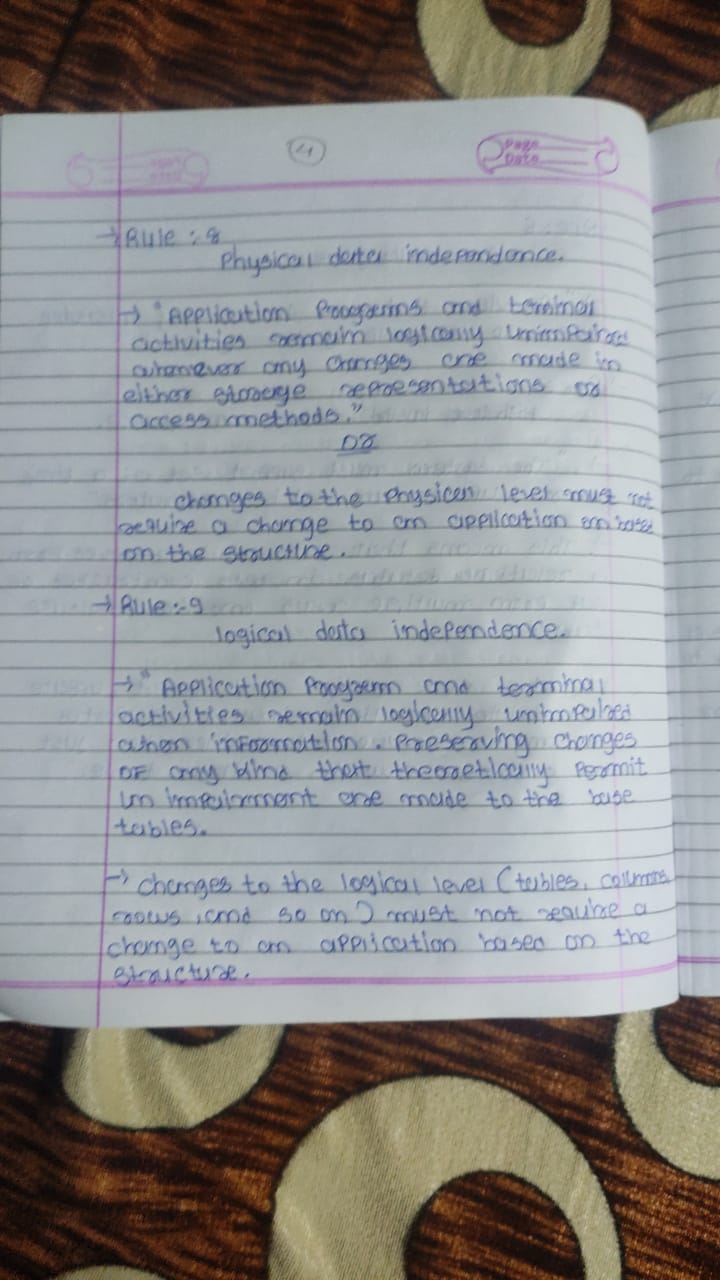 4
Page
Date
→ Rule :- 8
Physical data independance.
→ "Application Programs and terminal
activities remain logically unimpaired
whenever any changes are made in
either storage representations or
access methods."
OR
changes to the Physical level must not
require a change to an application based
on the structure.
→ Rule :- 9
logical data independence.
→ "Application Program and terminal
activities remain logically unimpaired
when information. Preserving changes
OF any kind that theoretically Permit
un impairment are made to the base
tables.
→ changes to the logical level (tables, columns
rows, and so on) must not require a
change to an application based on the
structure.